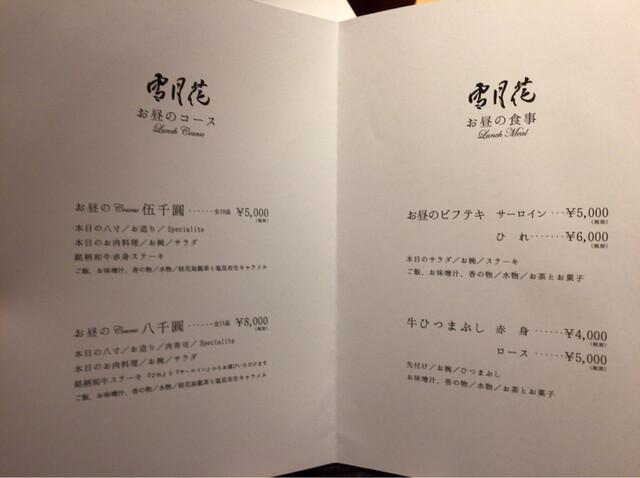 雪月花
お昼のコース
Lunch Course
お昼の Course 伍千圓 ······ 全10品 ¥5,000
(税別)
本日の八寸／お造り／Specialite
本日のお肉料理／お椀／サラダ
銘柄和牛赤身ステーキ
ご飯、お味噌汁、香の物／水物／桂花烏龍茶と塩昆布生キャラメル
お昼の Course 八千圓 ······ 全11品 ¥8,000
(税別)
本日の八寸／お造り／肉寿司／Specialite
本日のお肉料理／お椀／サラダ
銘柄和牛ステーキ 『ひれ』と『サーロイン』からお選びいただけます
ご飯、お味噌汁、香の物／水物／桂花烏龍茶と塩昆布生キャラメル
雪月花
お昼の食事
Lunch Meal
お昼のビフテキ サーロイン ··· ¥5,000
(税別)
ひれ ······· ¥6,000
(税別)
本日のサラダ／お椀／ステーキ
ご飯、お味噌汁、香の物／水物／お茶とお菓子
牛ひつまぶし 赤身 ······ ¥4,000
(税別)
ロース ······ ¥5,000
(税別)
先付け／お椀／ひつまぶし
お味噌汁、香の物／水物／お茶とお菓子